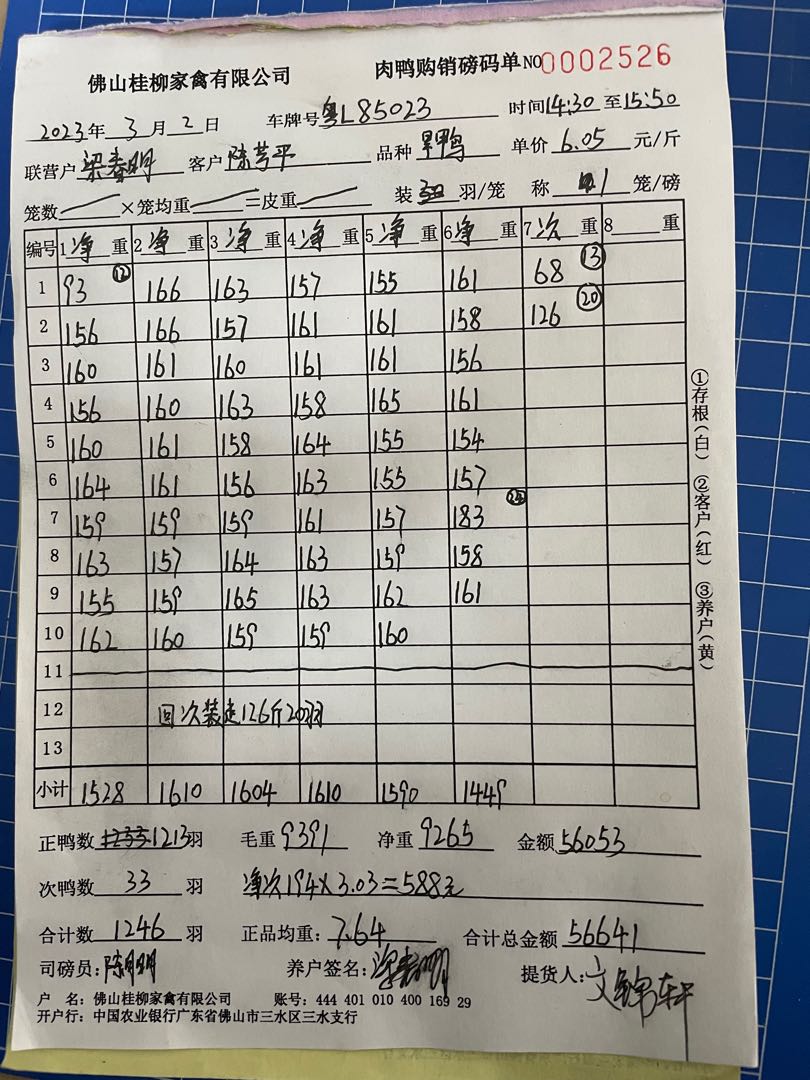 佛山桂柳家禽有限公司 肉鸭购销磅码单 NO 0002526
2023年 3月 2日 车牌号 粤L85023 时间 14:30 至 15:50
联营户 梁春明 客户 陈芎平 品种 旱鸭 单价 6.05 元/斤
笼数 ×笼均重 =皮重 装 羽/笼 称 1 笼/磅
编号 1 净 重 2 净 重 3 净 重 4 净 重 5 净 重 6 净 重 7 次 重 8 重
1 93 ⑫ 166 163 157 155 161 68 ⑬
2 156 166 157 161 161 158 126 ⑳
3 160 161 160 161 161 156
4 156 160 163 158 165 161
5 160 161 158 164 155 154
6 164 161 156 163 155 157
7 159 159 159 161 157 183
8 163 157 164 163 159 158
9 155 159 165 163 162 161
10 162 160 159 159 160
11
12 回次装走126斤20羽
13
小计 1528 1610 1604 1610 1590 1449
①存根(白) ②客户(红) ③养户(黄)
正鸭数 1233 1213 羽 毛重 9391 净重 9265 金额 56053
次鸭数 33 羽 净次194×3.03=588元
合计数 1246 羽 正品均重: 7.64 合计总金额 56641
司磅员: 陈明明 养户签名: 梁春明 提货人: 文锦轩
户 名: 佛山桂柳家禽有限公司 账号: 444 401 010 400 169 29
开户行: 中国农业银行广东省佛山市三水区三水支行